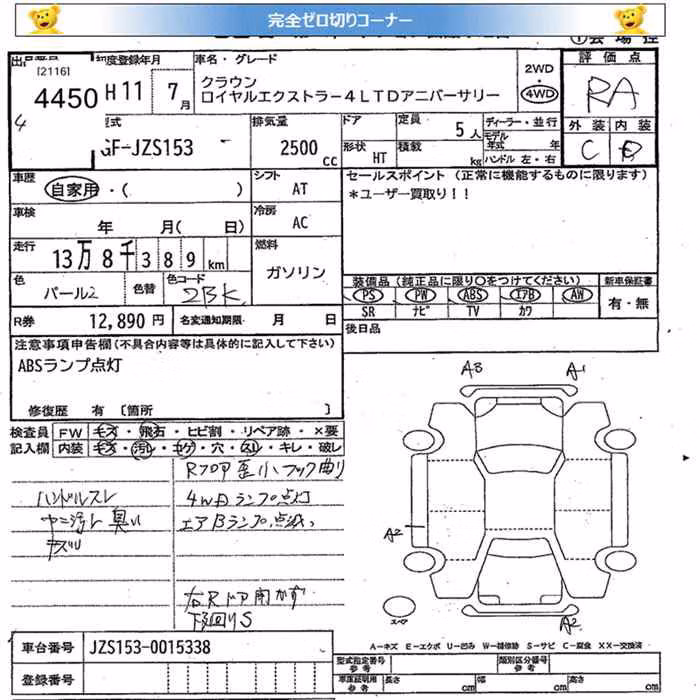 完全ゼロ切りコーナー
[2116]
4450
4
年度登録年月
H11 7月
車名・グレード
クラウン
ロイヤルエクストラ-4LTDアニバーサリー
2WD
・
4WD
評価点
RA
型式
GF-JZS153
排気量
2500 cc
ドア
形状 HT
定員 5人
積載 kg
ディーラー・並行
モデル年式 年
ハンドル 左・右
外装 内装
C D
車歴
自家用・( )
シフト
AT
セールスポイント (正常に機能するものに限ります)
*ユーザー買取り!!
車検
年 月( 日)
冷房
AC
走行
13万8千389km
燃料
ガソリン
色
パール2
色替
色コード
2BK
装備品 (純正品に限り○をつけてください)
新車保証書
PS PW ABS エアB AW
SR ナビ TV カワ
有・無
R券 12,890円
名変通知期限 月 日
後日品
注意事項申告欄(不具合内容等は具体的に記入して下さい)
ABSランプ点灯
修復歴 有 [箇所 ]
検査員 FW キズ・飛石・ヒビ割・リペア跡・×要
記入欄 内装 キズ・汚れ・コゲ・穴・スレ・キレ・破レ
ハンドルスレ
ヤニ汚レ 臭い
キズリ
歪 小 フック曲り
4WDランプ点灯
エアBランプ点滅
右Rドア開かず
下回りS
A3 A1
A2
A2
スペア
車台番号 JZS153-0015338
登録番号
A-キズ E-エクボ U-凹み W-補修跡 S-サビ C-腐食 XX-交換済
型式指定番号 参考
類別区分番号 参考
車庫証明用 参考 長さ cm 幅 cm 高さ cm